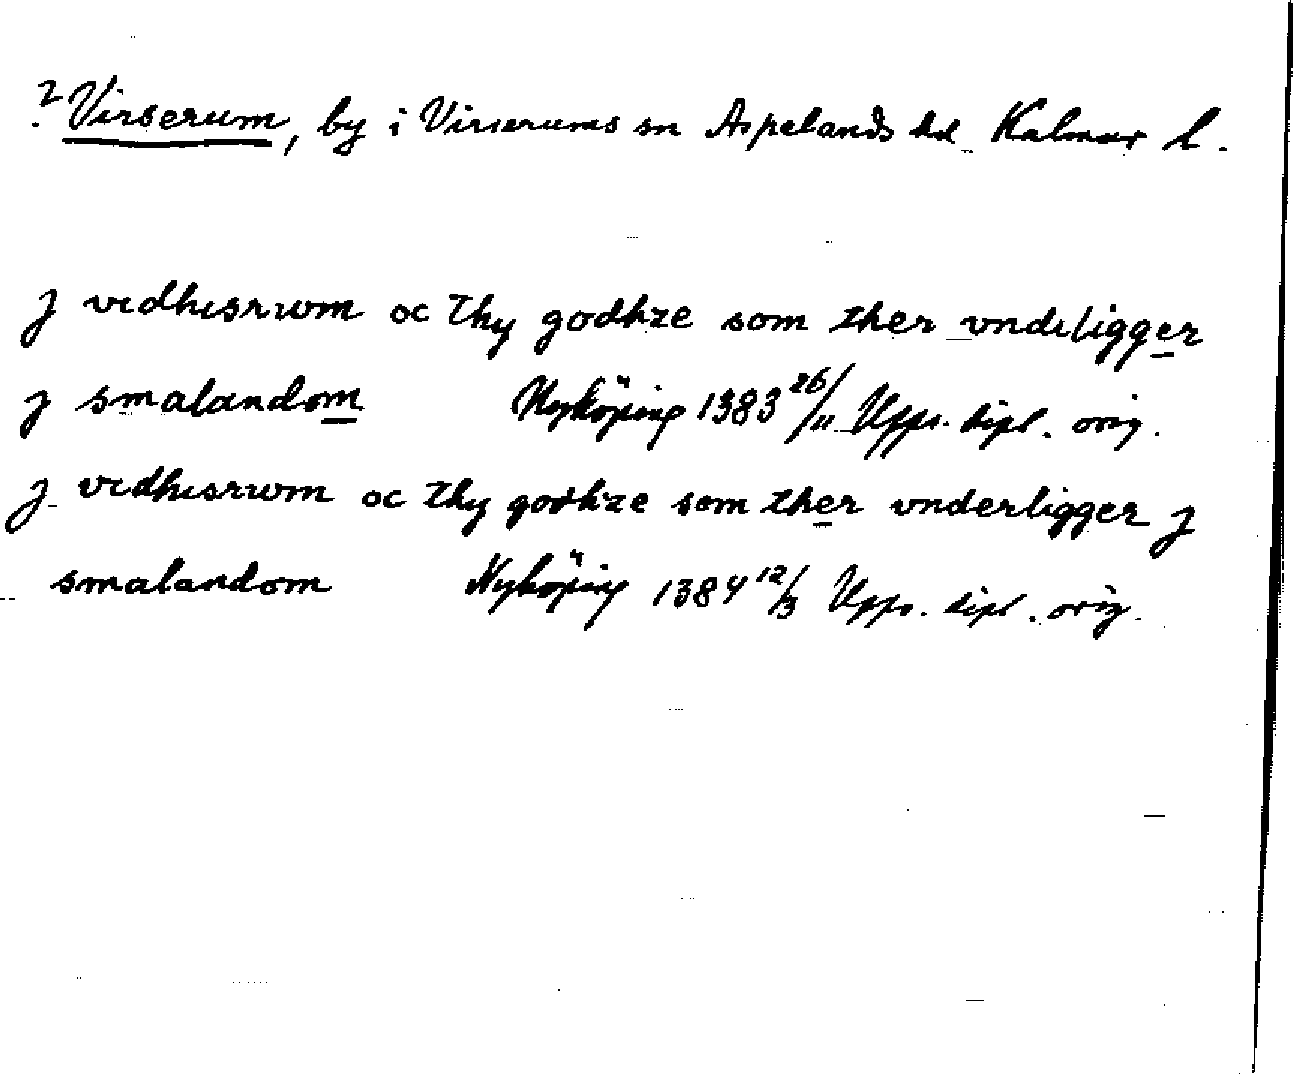 ? Virserum, by i Virserums sn Aspelands hd Kalmar l.
j vedhisrwm oc thy godhze som ther vndeligger
j smalandom Nyköping 1383 26/11 Upps. dipl. orig.
j vedhisrwm oc thy godhze som ther vnderligger j
smalandom Nyköping 1384 12/3 Upps. dipl. orig.